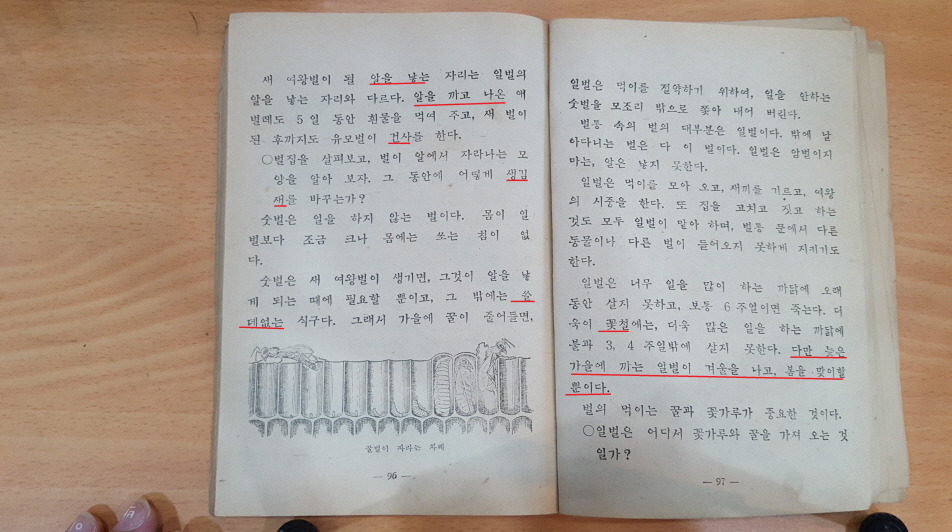 새 여왕벌이 될 알을 낳는 자리는 일벌의
알을 낳는 자리와 다르다. 알을 까고 나온 애
벌레도 5일 동안 흰물을 먹여 주고, 새 벌이
된 후까지도 유모벌이 건사를 한다.
○벌집을 살펴보고, 벌이 알에서 자라나는 모
양을 알아 보자. 그 동안에 어떻게 생김
새를 바꾸는가?
숫벌은 일을 하지 않는 벌이다. 몸이 일
벌보다 조금 크나 몸에는 쏘는 침이 없
다.
숫벌은 새 여왕벌이 생기면, 그것이 알을 낳
게 되는 때에 필요할 뿐이고, 그 밖에는 쓸
데없는 식구다. 그래서 가을에 꿀이 줄어들면,
꿀벌이 자라는 차례
— 96 —
일벌은 먹이를 절약하기 위하여, 일을 안하는
숫벌을 모조리 밖으로 쫓아 내어 버린다.
벌통 속의 벌의 대부분은 일벌이다. 밖에 날
아다니는 벌은 다 이 벌이다. 일벌은 암벌이지
마는, 알은 낳지 못한다.
일벌은 먹이를 모아 오고, 새끼를 기르고, 여왕
의 시중을 한다. 또 집을 고치고 짓고 하는
것도 모두 일벌이 맡아 하며, 벌통 문에서 다른
동물이나 다른 벌이 들어오지 못하게 지키기도
한다.
일벌은 너무 일을 많이 하는 까닭에 오래
동안 살지 못하고, 보통 6주일이면 죽는다. 더
욱이 꽃철에는, 더욱 많은 일을 하는 까닭에
불과 3, 4 주일밖에 살지 못한다. 다만 늦은
가을에 까는 일벌이 겨울을 나고, 봄을 맞이할
뿐이다.
벌의 먹이는 꿀과 꽃가루가 중요한 것이다.
○일벌은 어디서 꽃가루와 꿀을 가져 오는 것
일가?
— 97 —